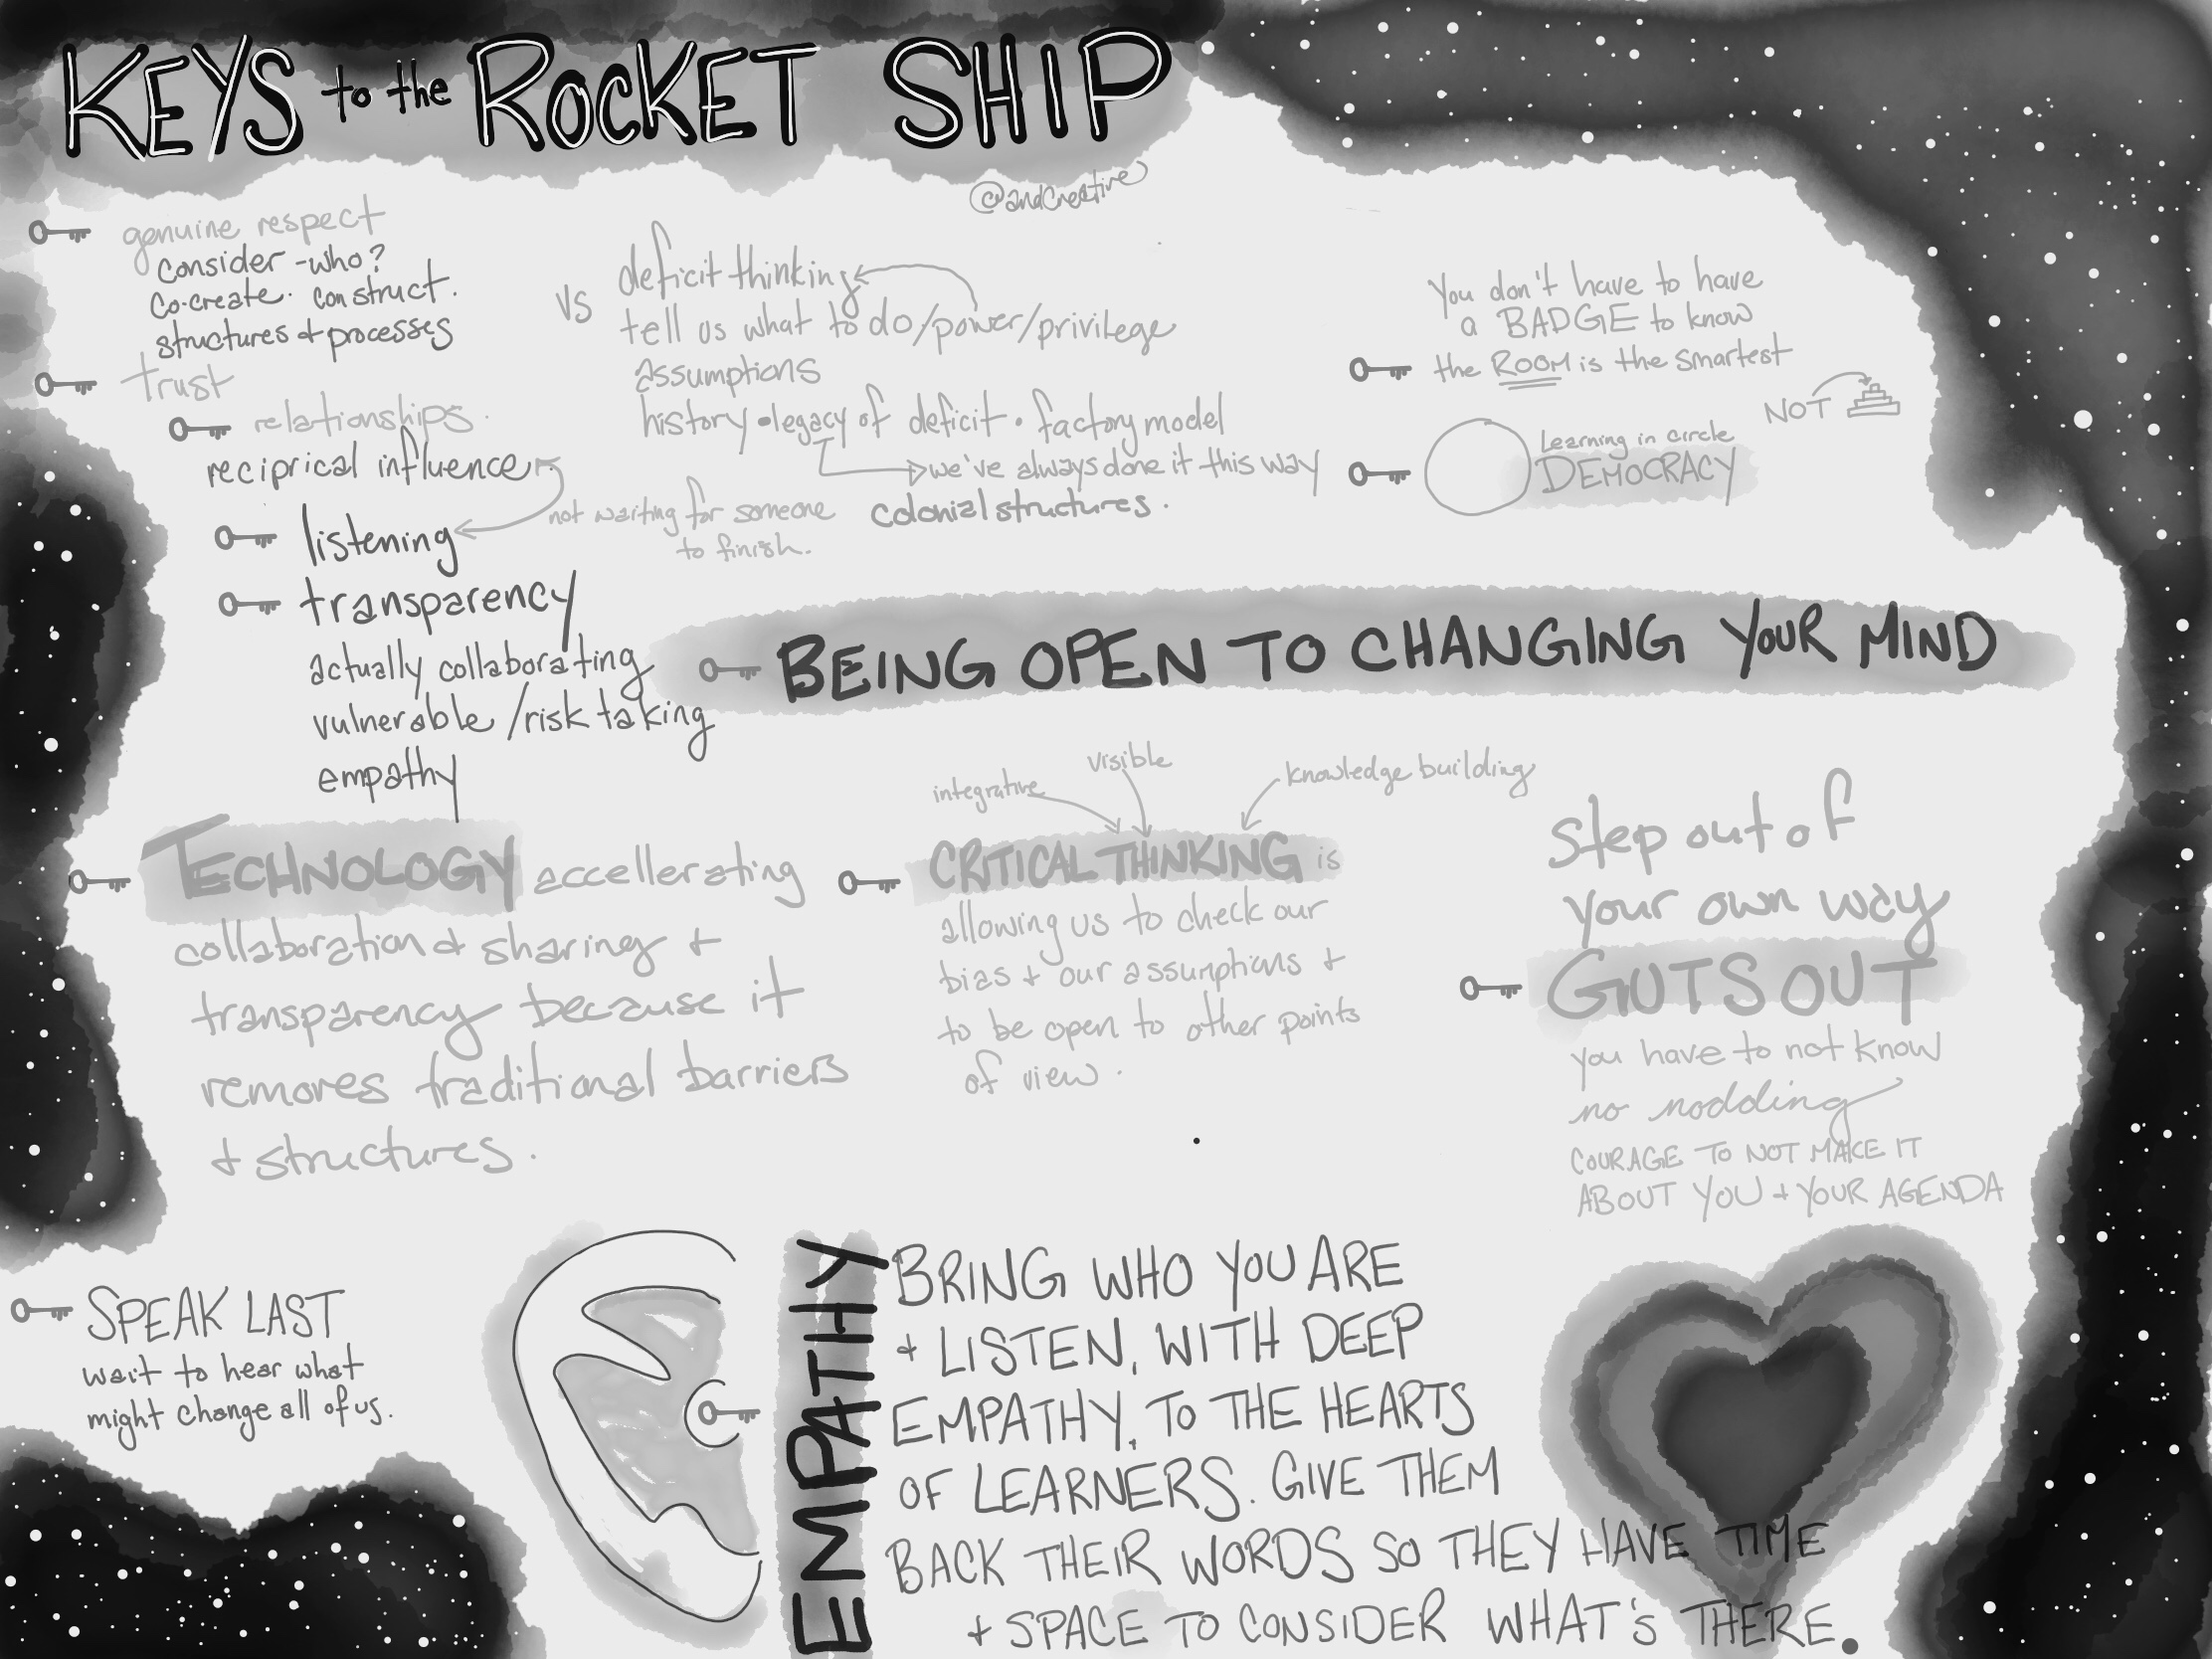 KEYS to the ROCKET SHIP
@andCreative
genuine respect
consider - who?
co-create. construct.
structures + processes
trust
relationships.
reciprical influence
listening
not waiting for someone
to finish.
transparency
actually collaborating
vulnerable / risk taking
empathy
vs
deficit thinking
tell us what to do / power / privilege
assumptions
history • legacy of deficit • factory model
we've always done it this way
colonial structures.
You don't have to have
a BADGE to know
the ROOM is the smartest
NOT
Learning in circle
DEMOCRACY
BEING OPEN TO CHANGING YOUR MIND
TECHNOLOGY accellerating
collaboration + sharing +
transparency because it
removes traditional barriers
+ structures.
integrative
visible
knowledge building
CRITICAL THINKING is
allowing us to check our
bias + our assumptions +
to be open to other points
of view.
Step out of
your own way
GUTS OUT
you have to not know
no nodding
COURAGE TO NOT MAKE IT
ABOUT YOU + YOUR AGENDA
SPEAK LAST
wait to hear what
might change all of us.
EMPATHY
BRING WHO YOU ARE
+ LISTEN, WITH DEEP
EMPATHY, TO THE HEARTS
OF LEARNERS. GIVE THEM
BACK THEIR WORDS SO THEY HAVE TIME
+ SPACE TO CONSIDER WHAT'S THERE.